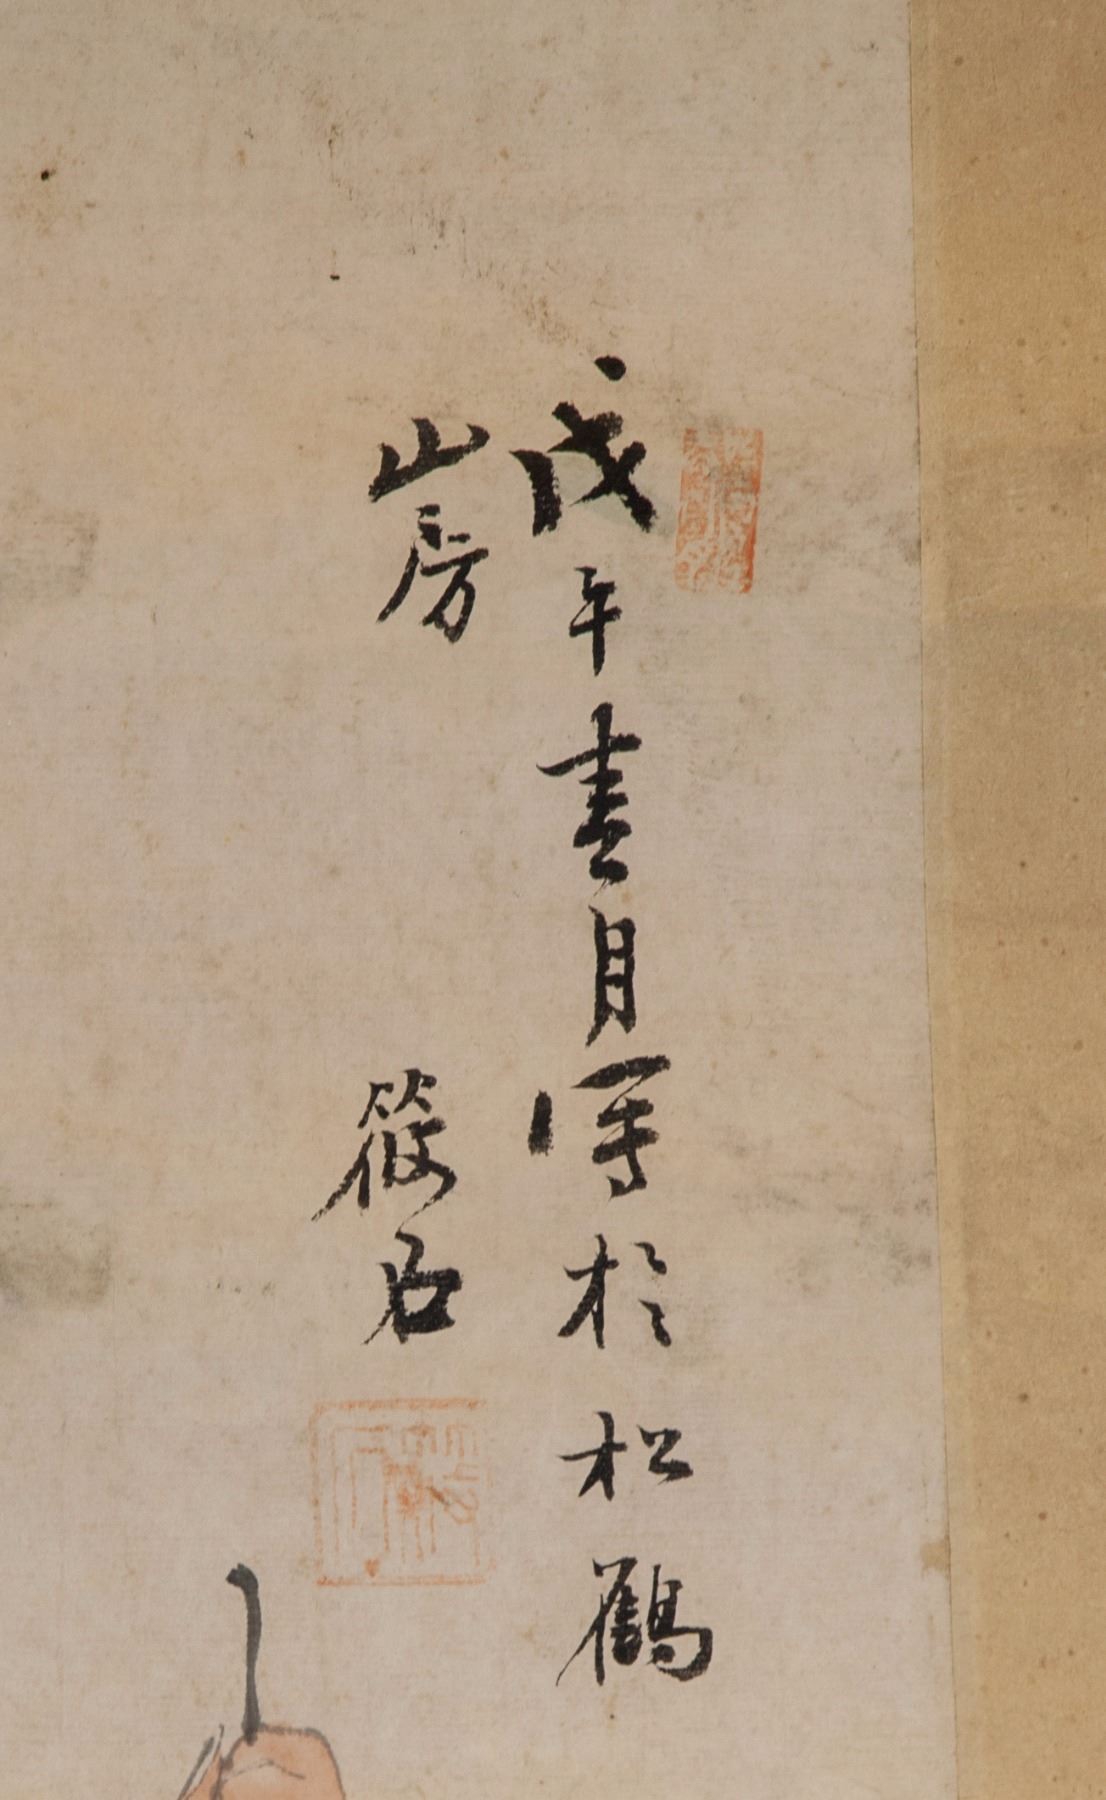 戊午春月写於松鶴
山房
筱石